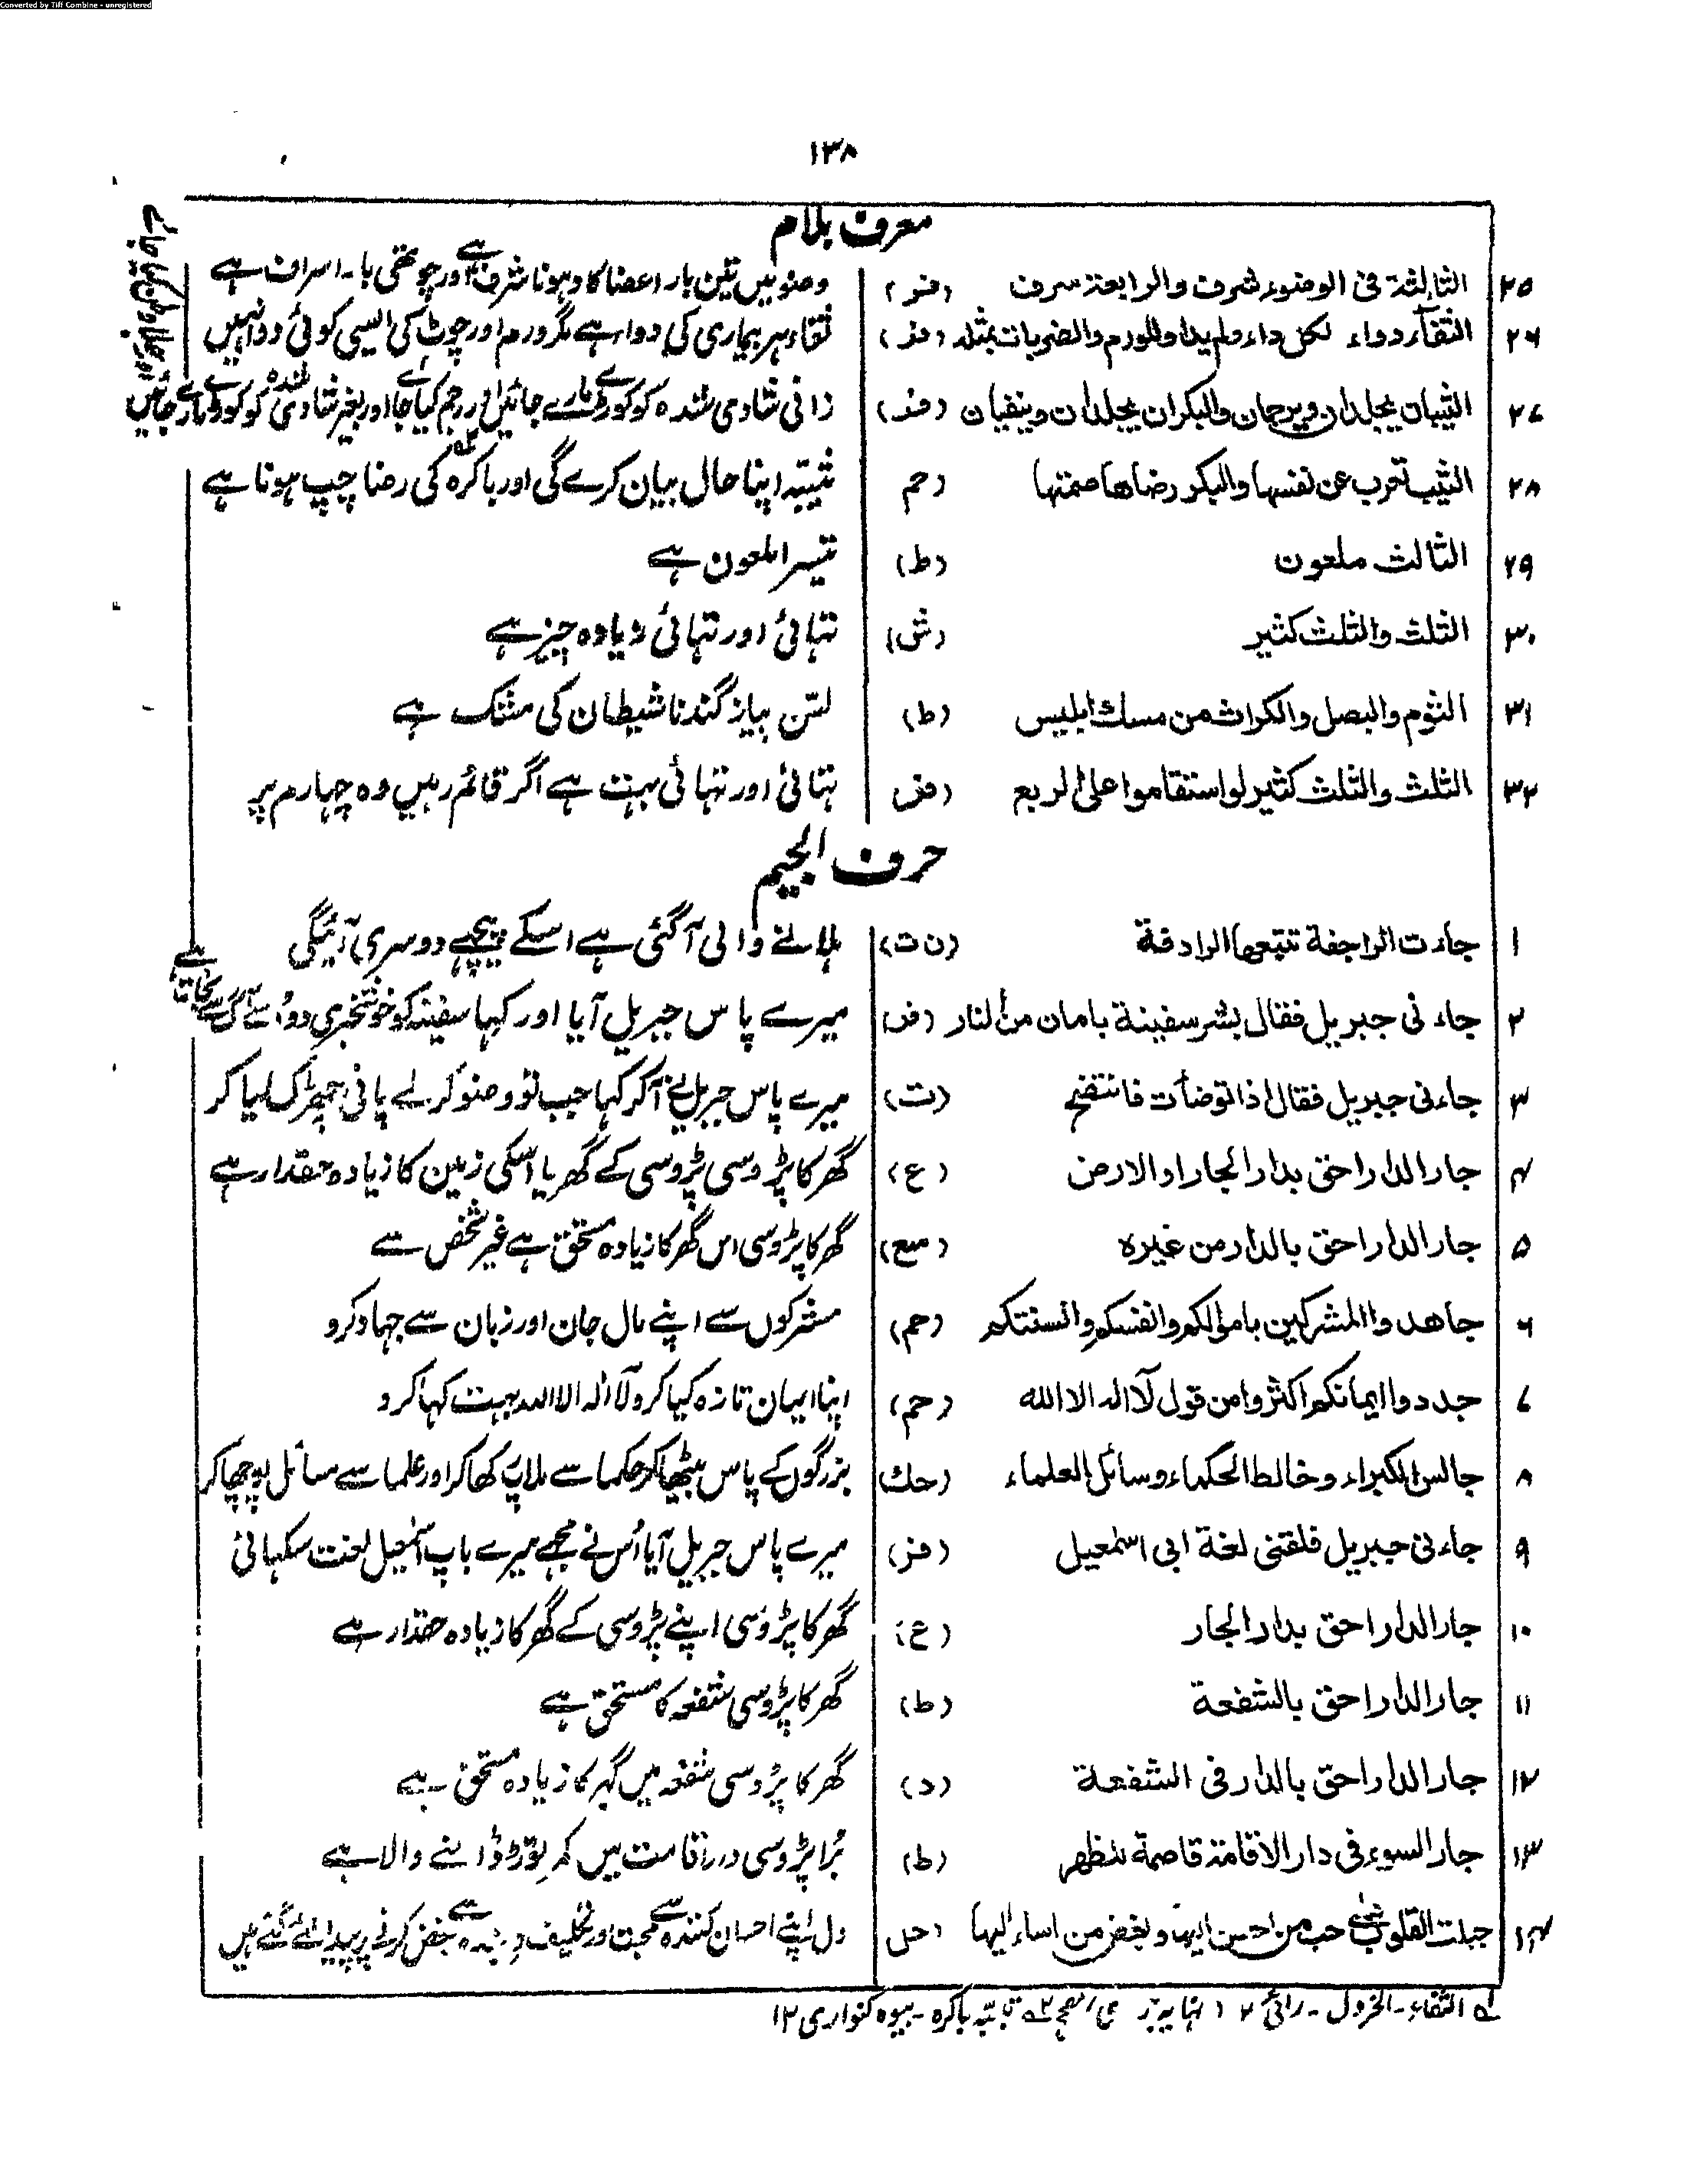 Converted by Tiff Combine - unregistered
۱۳۸
معرف بلام
۲۵ الثالثة فی الوضوء شرف والرابعة سرف (فر) وضو میں تین بار اعضا کا دہونا شرف ہے اور چوتھی بار اسراف ہے
۲۶ الثفآء دواء لکل داء ولم یداو للورم والضربات بمثلہ (فر) ثفاء ہر بیماری کی دوا ہے مگر ورم اور چوٹ کی ایسی کوئی دوا نہیں
۲۷ الثیبان یجلدان ویرجمان والبکران یجلدان وینفیان (فر) زانی شادی شدہ کو کوڑے مارے جائیں اور رجم کیا جائے اور بغیر شادی شدہ کو کوڑے مارے جائیں
اور جلا وطن کیا جائے
۲۸ الثیب تعرب عن نفسہا والبکر رضاھا صمتہا (حم) ثیبّہ اپنا حال بیان کرے گی اور باکرہ کی رضا چپ ہونا ہے
۲۹ الثالث ملعون (ط) تیسرا ملعون ہے
۳۰ الثلث والثلث کثیر (ش) تہائی اور تہائی زیادہ چیز ہے
۳۱ الثوم والبصل والکراث من مسک ابلیس (ط) لسّن پیاز گندنا شیطان کی مشک ہے
۳۲ الثلث والثلث کثیر لو استقاموا علی الربع (فر) تہائی اور تہائی بہت ہے اگر قائم رہیں وہ چہارم پر
حرف الجیم
۱ جاءت الراجفة تتبعھا الرادفة (ن ت) ہلانے والی آگئی ہے اسکے پیچھے دوسری آئیگی
۲ جاءنی جبریل فقال بشر سفینة بامان من النار (فر) میرے پاس جبریل آیا اور کہا سفینہ کو خوشخبری دو اسے آگ سے نجات ہے
۳ جاءنی جبریل فقال اذا توضأت فانتضح (ت) میرے پاس جبریل نے آکر کہا جب تو وضو کرے پانی چھڑک لیا کر
۴ جار الدار احق بدار الجار او الارض (ع) گھر کا پڑوسی پڑوسی کے گھر یا اسکی زمین کا زیادہ حقدار ہے
۵ جار الدار احق بالدار من غیرہ (سع) گھر کا پڑوسی اس گھر کا زیادہ مستحق ہے غیر شخص سے
۶ جاھدوا المشرکین باموالکم وانفسکم والسنتکم (حم) مشرکوں سے اپنے مال جان اور زبان سے جہاد کرو
۷ جددوا ایمانکم اکثروا من قول لآالہ الا اللہ (حم) اپنا ایمان تازہ کیا کرو لآالہ الا اللہ بہت کہا کرو
۸ جالس الکبراء وخالط الحکماء وسائل العلماء (حك) بزرگوں کے پاس بیٹھا کر حکما سے ملاپ رکھا کر اور علما سے مسائل پوچھا کر
۹ جاءنی جبریل فلقنی لغة ابی اسمٰعیل (فر) میرے پاس جبریل آیا اُس نے مجھے میرے باپ اسمٰعیل لغت سکہائی
۱۰ جار الدار احق بدار الجار (ع) گھر کا پڑوسی اپنے پڑوسی کے گھر کا زیادہ حقدار ہے
۱۱ جار الدار احق بالشفعة (ط) گھر کا پڑوسی شفعہ کا مستحق ہے
۱۲ جار الدار احق بالدار فی الشفعة (د) گھر کا پڑوسی شفعہ میں گہر کا زیادہ مستحق ہے
۱۳ جار السوء فی دار الاقامة قاصمة للظھر (ط) بُرا پڑوسی دار اقامت میں کمر توڑ ڈالنے والا ہے
۱۴ جبلت القلوب علی حب من احسن الیہا وبغض من اساء الیہا (حل) دل اپنے احسان کنندہ سے محبت اور تکلیف دہندہ سے بغض کرنے پر پیدا کئے گئے ہیں
لہ الثفاء - الخردل - رائی ۲ ثیبہ باکرہ - بیوہ کنواری ۱۲